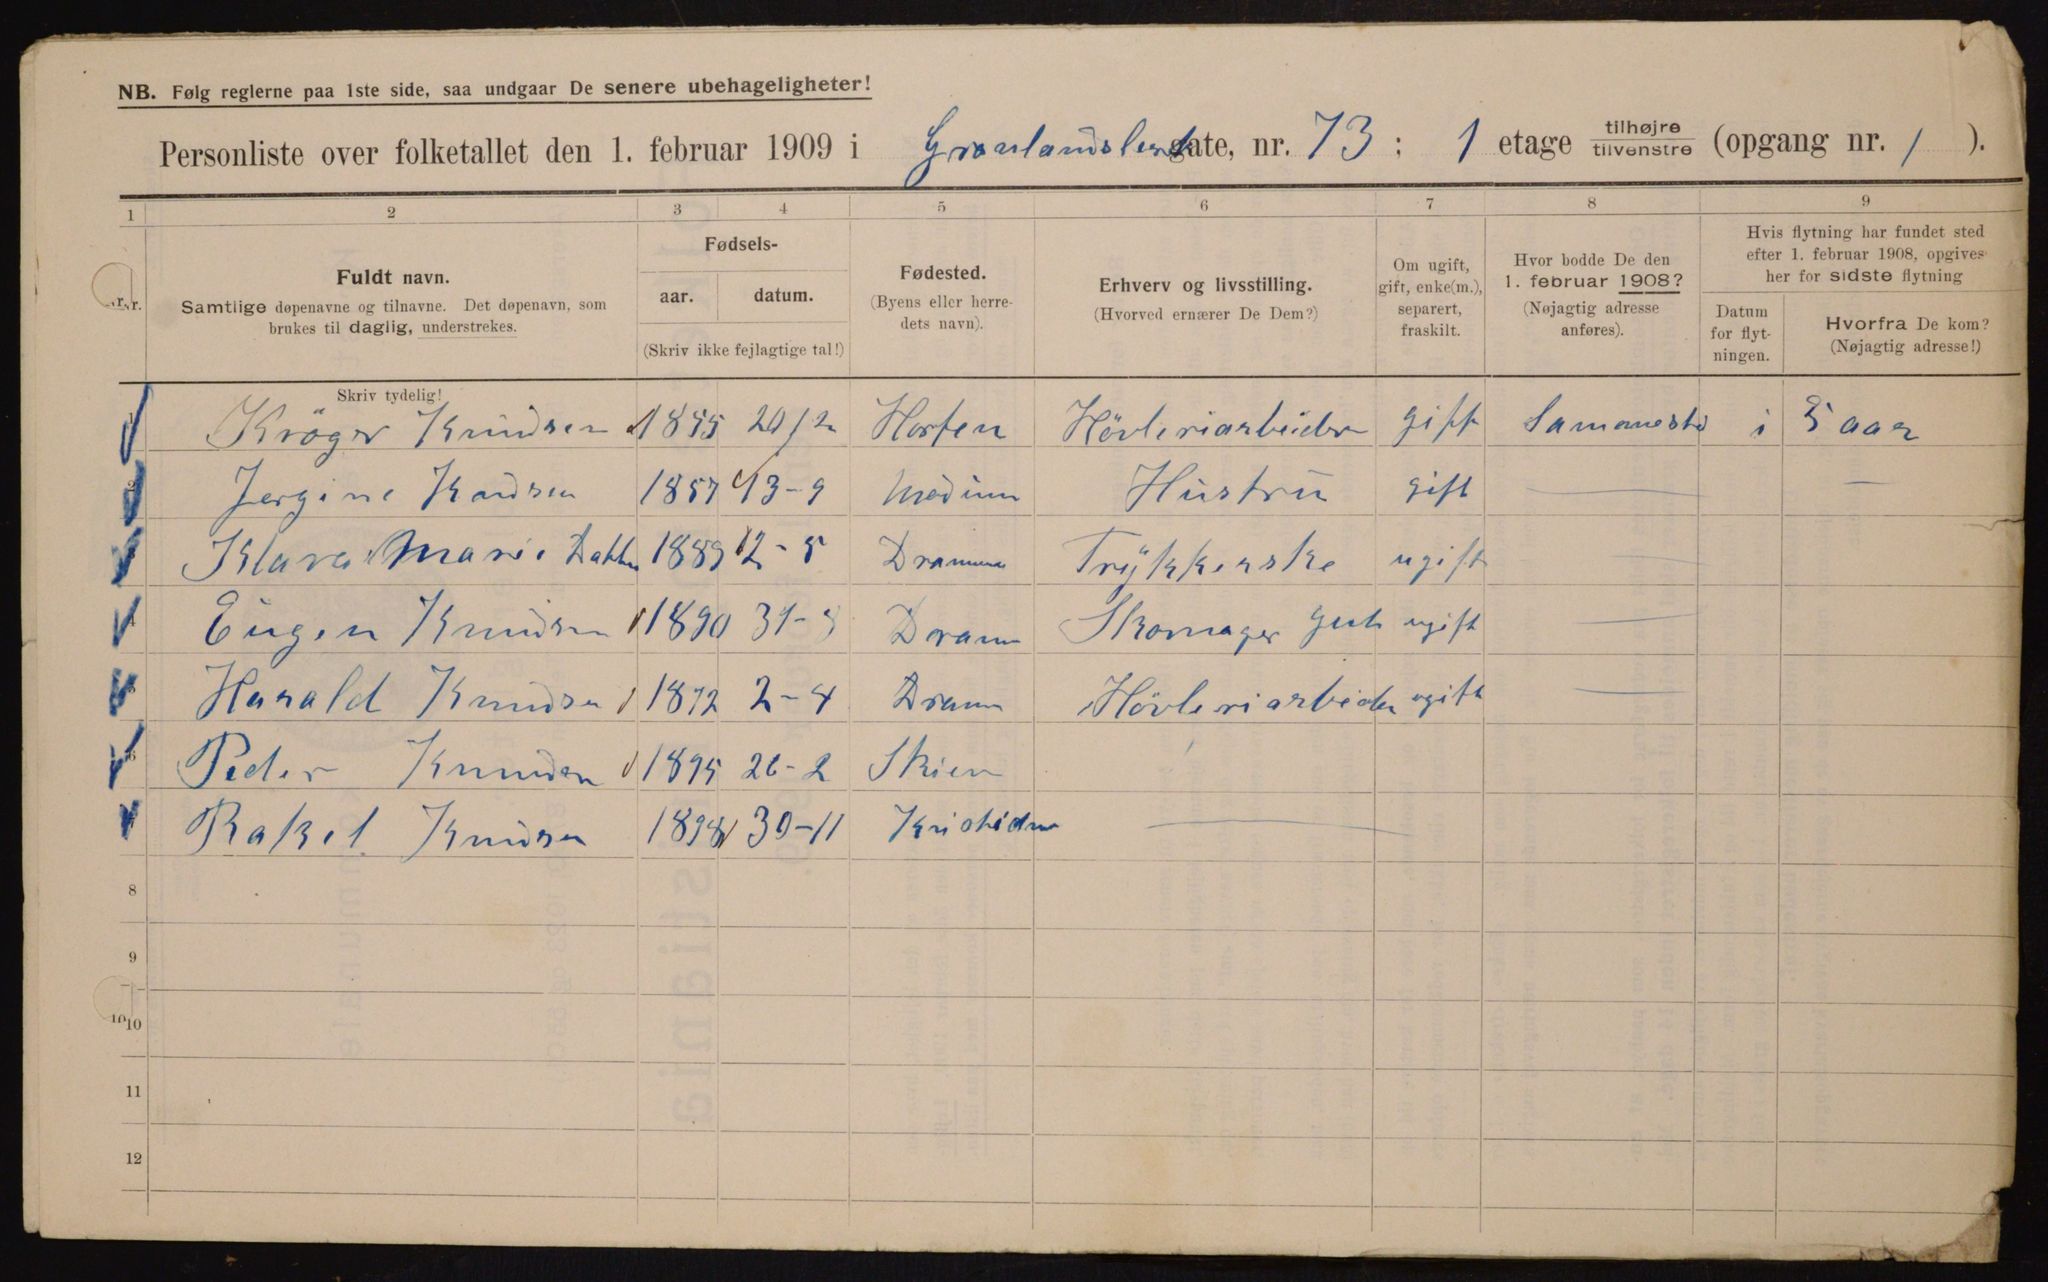 NB. Følg reglerne paa 1ste side, saa undgaar De senere ubehageligheter!
Personliste over folketallet den 1. februar 1909 i Grønlandsleret gate, nr. 73 : 1 etage tilhøjre tilvenstre (opgang nr. 1 ).
1 2 3 4 5 6 7 8 9
Nr.
Fuldt navn.
Samtlige døpenavne og tilnavne. Det døpenavn, som
brukes til daglig, understrekes.
Skriv tydelig!
Fødsels-
aar. datum.
(Skriv ikke fejlagtige tal!)
Fødested.
(Byens eller herre-
dets navn).
Erhverv og livsstilling.
(Hvorved ernærer De Dem?)
Om ugift,
gift, enke(m.),
separert,
fraskilt.
Hvor bodde De den
1. februar 1908?
(Nøjagtig adresse
anføres).
Hvis flytning har fundet sted
efter 1. februar 1908, opgives
her for sidste flytning
Datum
for flyt-
ningen.
Hvorfra De kom?
(Nøjagtig adresse!)
1 Kröger Knudsen 1855 20/2 Horten Hövleriarbeider gift Sammested i 5 aar
2 Jergine Knudsen 1857 13-9 Modum Hustru gift
Klara Marie 1889 12-5 Drammen Trykkerske ugift
Eugen Knudsen 1890 31-8 Dramm Skomager gut ugift
Harald Knudsen 1872 2-4 Dramm Hövleriarbeider ugift
Peder Knudsen 1895 26-2 Skien
Rakel Knudsen 1898 30-11
8
9
10
11
12